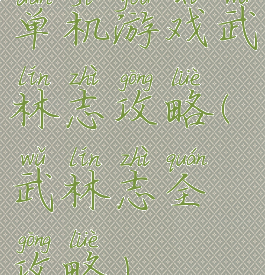 dān jī yóu xì wǔ
单机游戏武
lín zhì gōng lüè
林志攻略(
wǔ lín zhì quán
武林志全
gōng lüè
攻略)